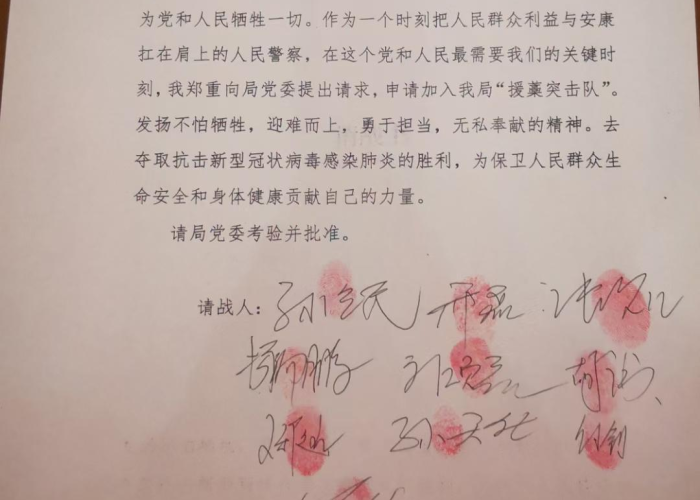 为党和人民牺牲一切。作为一个时刻把人民群众利益与安康
扛在肩上的人民警察，在这个党和人民最需要我们的关键时
刻，我郑重向局党委提出请求，申请加入我局“援藁突击队”。
发扬不怕牺牲，迎难而上，勇于担当，无私奉献的精神。去
夺取抗击新型冠状病毒感染肺炎的胜利，为保卫人民群众生
命安全和身体健康贡献自己的力量。
请局党委考验并批准。
请战人：